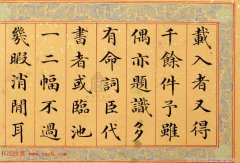 載入者又得
千餘件予雖
偶亦題識多
有命詞臣代
書者或臨池
一二幅不過
幾暇消閒耳